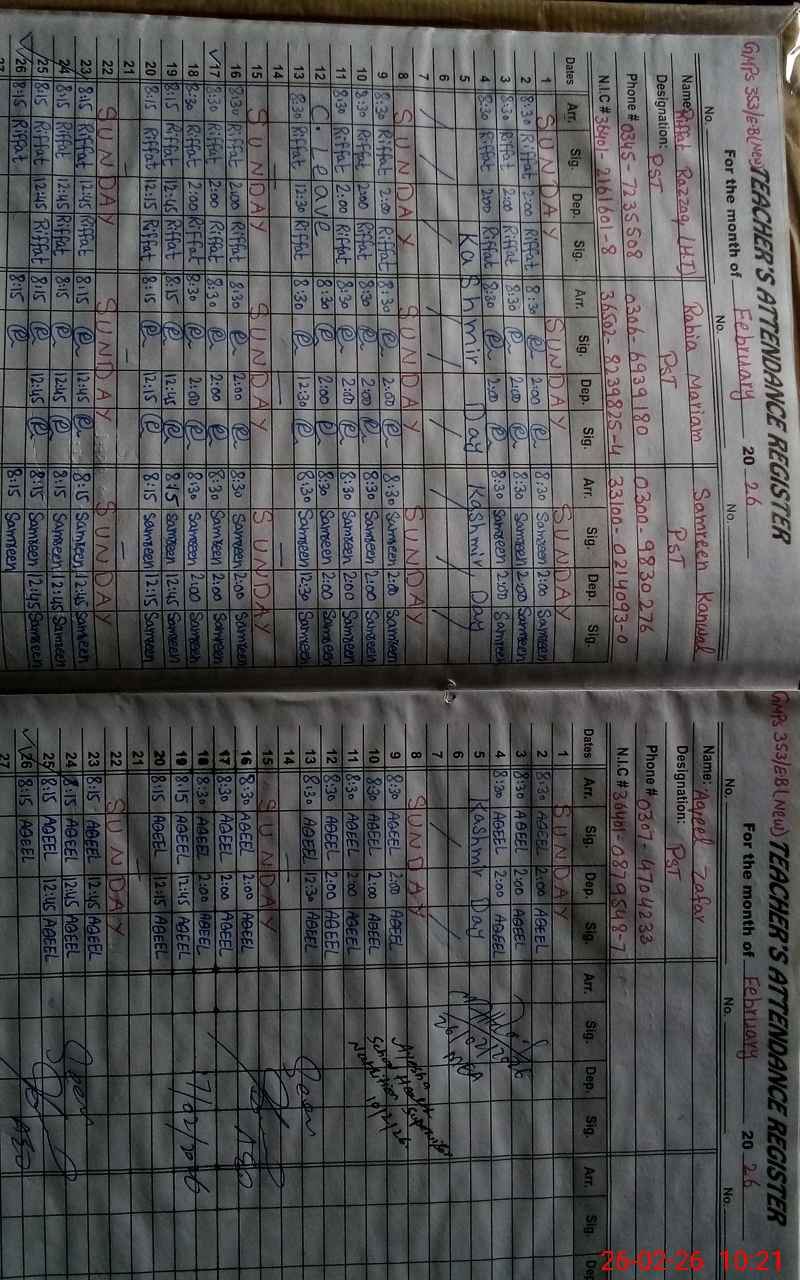 GMPS 353/EB (New) TEACHER'S ATTENDANCE REGISTER
For the month of February 20 26
No. No. No.
Name: Riffat Razzaq (H.T) Rabia Mariam Samreen Kanwal
Designation: PST PST PST
Phone # 0345-7235508 0306-6939180 0300-9830276
N.I.C # 36401-2161601-8 36502-8239825-4 33100-0214093-0
Dates Arr. Sig. Dep. Sig. Arr. Sig. Dep. Sig. Arr. Sig. Dep. Sig.
1 SUNDAY SUNDAY SUNDAY
2 8:30 Riffat 2:00 Riffat 8:30 2:00 8:30 Samreen 2:00 Samreen
3 8:30 Riffat 2:00 Riffat 8:30 2:00 8:30 Samreen 2:00 Samreen
4 8:30 Riffat 2:00 Riffat 8:30 2:00 8:30 Samreen 2:00 Samreen
5 Kashmir Day Kashmir Day
6
7
8 SUNDAY SUNDAY SUNDAY
9 8:30 Riffat 2:00 Riffat 8:30 2:00 8:30 Samreen 2:00 Samreen
10 8:30 Riffat 2:00 Riffat 8:30 2:00 8:30 Samreen 2:00 Samreen
11 8:30 Riffat 2:00 Riffat 8:30 2:00 8:30 Samreen 2:00 Samreen
12 C. Leave 8:30 2:00 8:30 Samreen 2:00 Samreen
13 8:30 Riffat 12:30 Riffat 8:30 12:30 8:30 Samreen 12:30 Samreen
14 — — —
15 SUNDAY SUNDAY SUNDAY
16 8:30 Riffat 2:00 Riffat 8:30 2:00 8:30 Samreen 2:00 Samreen
17 8:30 Riffat 2:00 Riffat 8:30 2:00 8:30 Samreen 2:00 Samreen
18 8:30 Riffat 2:00 Riffat 8:30 2:00 8:30 Samreen 2:00 Samreen
19 8:15 Riffat 12:45 Riffat 8:15 12:45 8:15 Samreen 12:45 Samreen
20 8:15 Riffat 12:15 Riffat 8:15 12:15 8:15 Samreen 12:15 Samreen
21 — — —
22 SUNDAY SUNDAY SUNDAY
23 8:15 Riffat 12:45 Riffat 8:15 12:45 8:15 Samreen 12:45 Samreen
24 8:15 Riffat 12:45 Riffat 8:15 12:45 8:15 Samreen 12:45 Samreen
25 8:15 Riffat 12:45 Riffat 8:15 12:45 8:15 Samreen 12:45 Samreen
26 8:15 Riffat 8:15 8:15 Samreen
27
GMPS 353/EB (New) TEACHER'S ATTENDANCE REGISTER
For the month of February 20 26
No. No. No.
Name: Aqeel Zafar
Designation: PST
Phone # 0307-4704233
N.I.C # 36401-0879548-7
Dates Arr. Sig. Dep. Sig. Arr. Sig. Dep. Sig. Arr. Sig. Dep.
1 SUNDAY
2 8:30 AQEEL 2:00 AQEEL
3 8:30 AQEEL 2:00 AQEEL
4 8:30 AQEEL 2:00 AQEEL
5 Kashmir Day
6
7
8 SUNDAY
9 8:30 AQEEL 2:00 AQEEL
10 8:30 AQEEL 2:00 AQEEL
11 8:30 AQEEL 2:00 AQEEL
12 8:30 AQEEL 2:00 AQEEL
13 8:30 AQEEL 12:30 AQEEL
14 —
15 SUNDAY
16 8:30 AQEEL 2:00 AQEEL
17 8:30 AQEEL 2:00 AQEEL
18 8:30 AQEEL 2:00 AQEEL
19 8:15 AQEEL 12:45 AQEEL
20 8:15 AQEEL 12:15 AQEEL
21 —
22 SUNDAY
23 8:15 AQEEL 12:45 AQEEL
24 8:15 AQEEL 12:45 AQEEL
25 8:15 AQEEL 12:45 AQEEL
26 8:15 AQEEL
27
MEA
School Health
Nutrition
10/2/26
AEO
17/02/2026
AEO
26-02-26 10:21